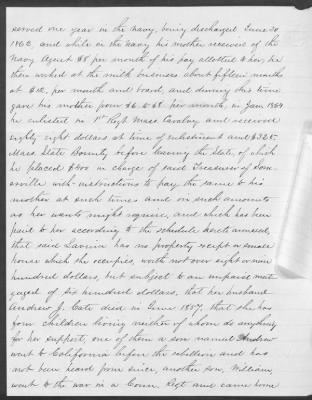 served one year in the Navy, being discharged June 30
1863, and while in the Navy his mother received of the
Navy Agent $8 per month of his pay allotted to her, he
then worked at the milk business about fifteen months
at $12, per month and board, and during this time
gave his mother from $6 to $8 per month, in Jan 1864
he enlisted in 1st Regt Mass Cavalry, and received
eighty eight dollars at time of enlistment and $325.
Mass State Bounty before leaving the State, of which
he placed $400 in charge of said Treasurer of Som-
erville with instructions to pay the same to his
mother at such times and in such amounts
as her wants might require, and which has been
paid to her according to the schedule hereto annexed,
that said Lavinia has no property except a small
house which she occupies, worth not over eight or nine
hundred dollars, but subject to an unpaid mort
gage of six hundred dollars, that her husband
Andrew J. Cate died in June 1857, that she has
four children living neither of whom do anything
for her support, one of them a son named Andrew
went to California before the rebellion and has
not been heard from since, another son, William,
went to the war in a Conn Regt and came home